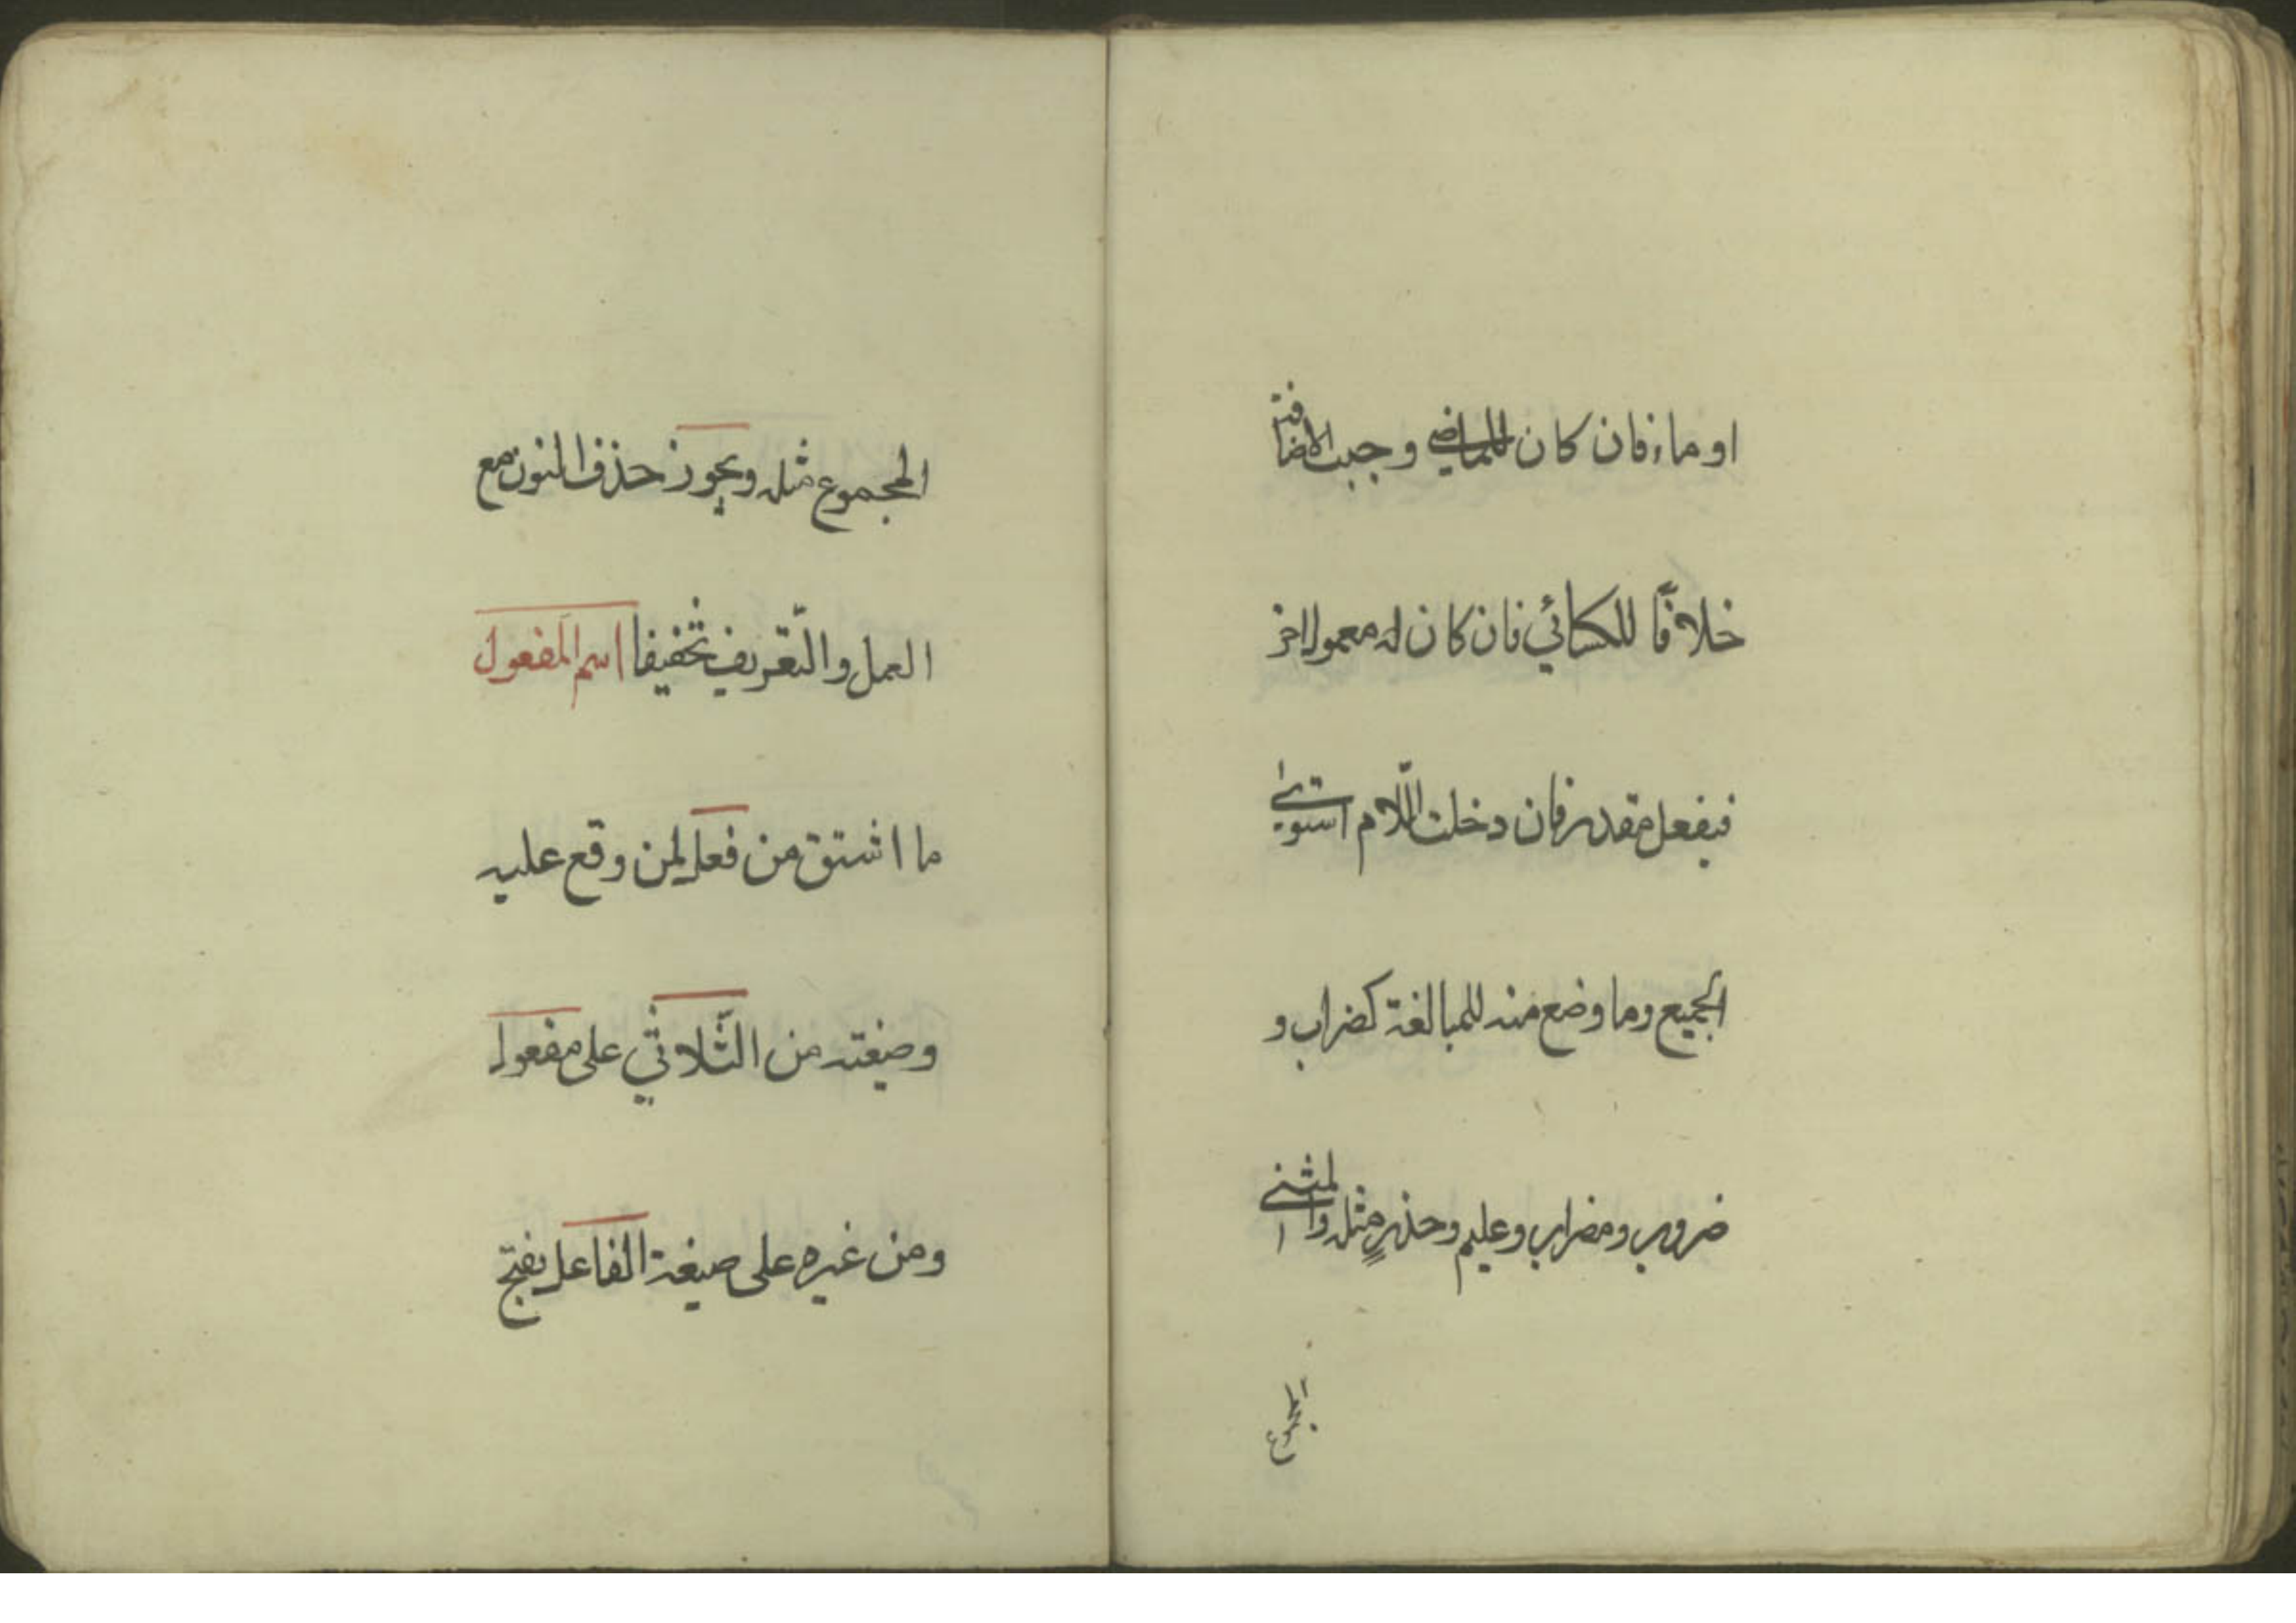 او ما، فان كان للماضي وجبت الاضافة
خلافًا للكسائي فان كان له معمول اخر
فبفعل مقدر فان دخلت اللّام استوى
الجميع وما وضع منه للمبالغة كضراب و
ضروب ومضراب وعليم وحذرٍ مثله والمثنى
المجموع
المجموع مثله ويجوز حذف النون مع
العمل والتّعريف تخفيفا اسم المفعول
ما اشتق من فعل لمن وقع عليه
وصيغته من الثّلاثي على مفعول
ومن غيره على صيغة الفاعل بفتح